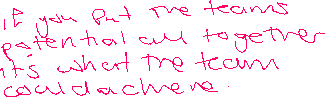 if you put the teams
potential all together
it's what the team
could achieve.